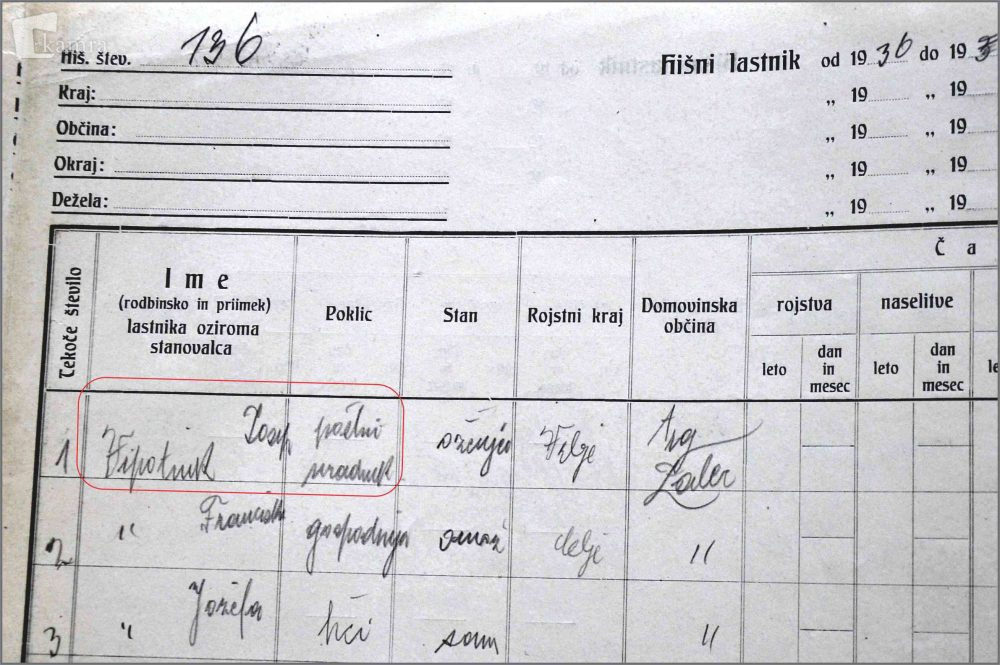 Hiš. štev. 136
Hišni lastnik od 1936 do 193
Kraj:
„ 19 „ 19
Občina:
„ 19 „ 19
Okraj:
„ 19 „ 19
Dežela:
„ 19 „ 19
Tekoče število
Ime
(rodbinsko in priimek)
lastnika oziroma
stanovalca
Poklic
Stan
Rojstni kraj
Domovinska
občina
Ča
rojstva
naselitve
leto
dan
in
mesec
leto
dan
in
mesec
le
1 Josip poštni
uradnik
Trg
Žalec
2 " gospodinja "
3 " Jožefa hči "